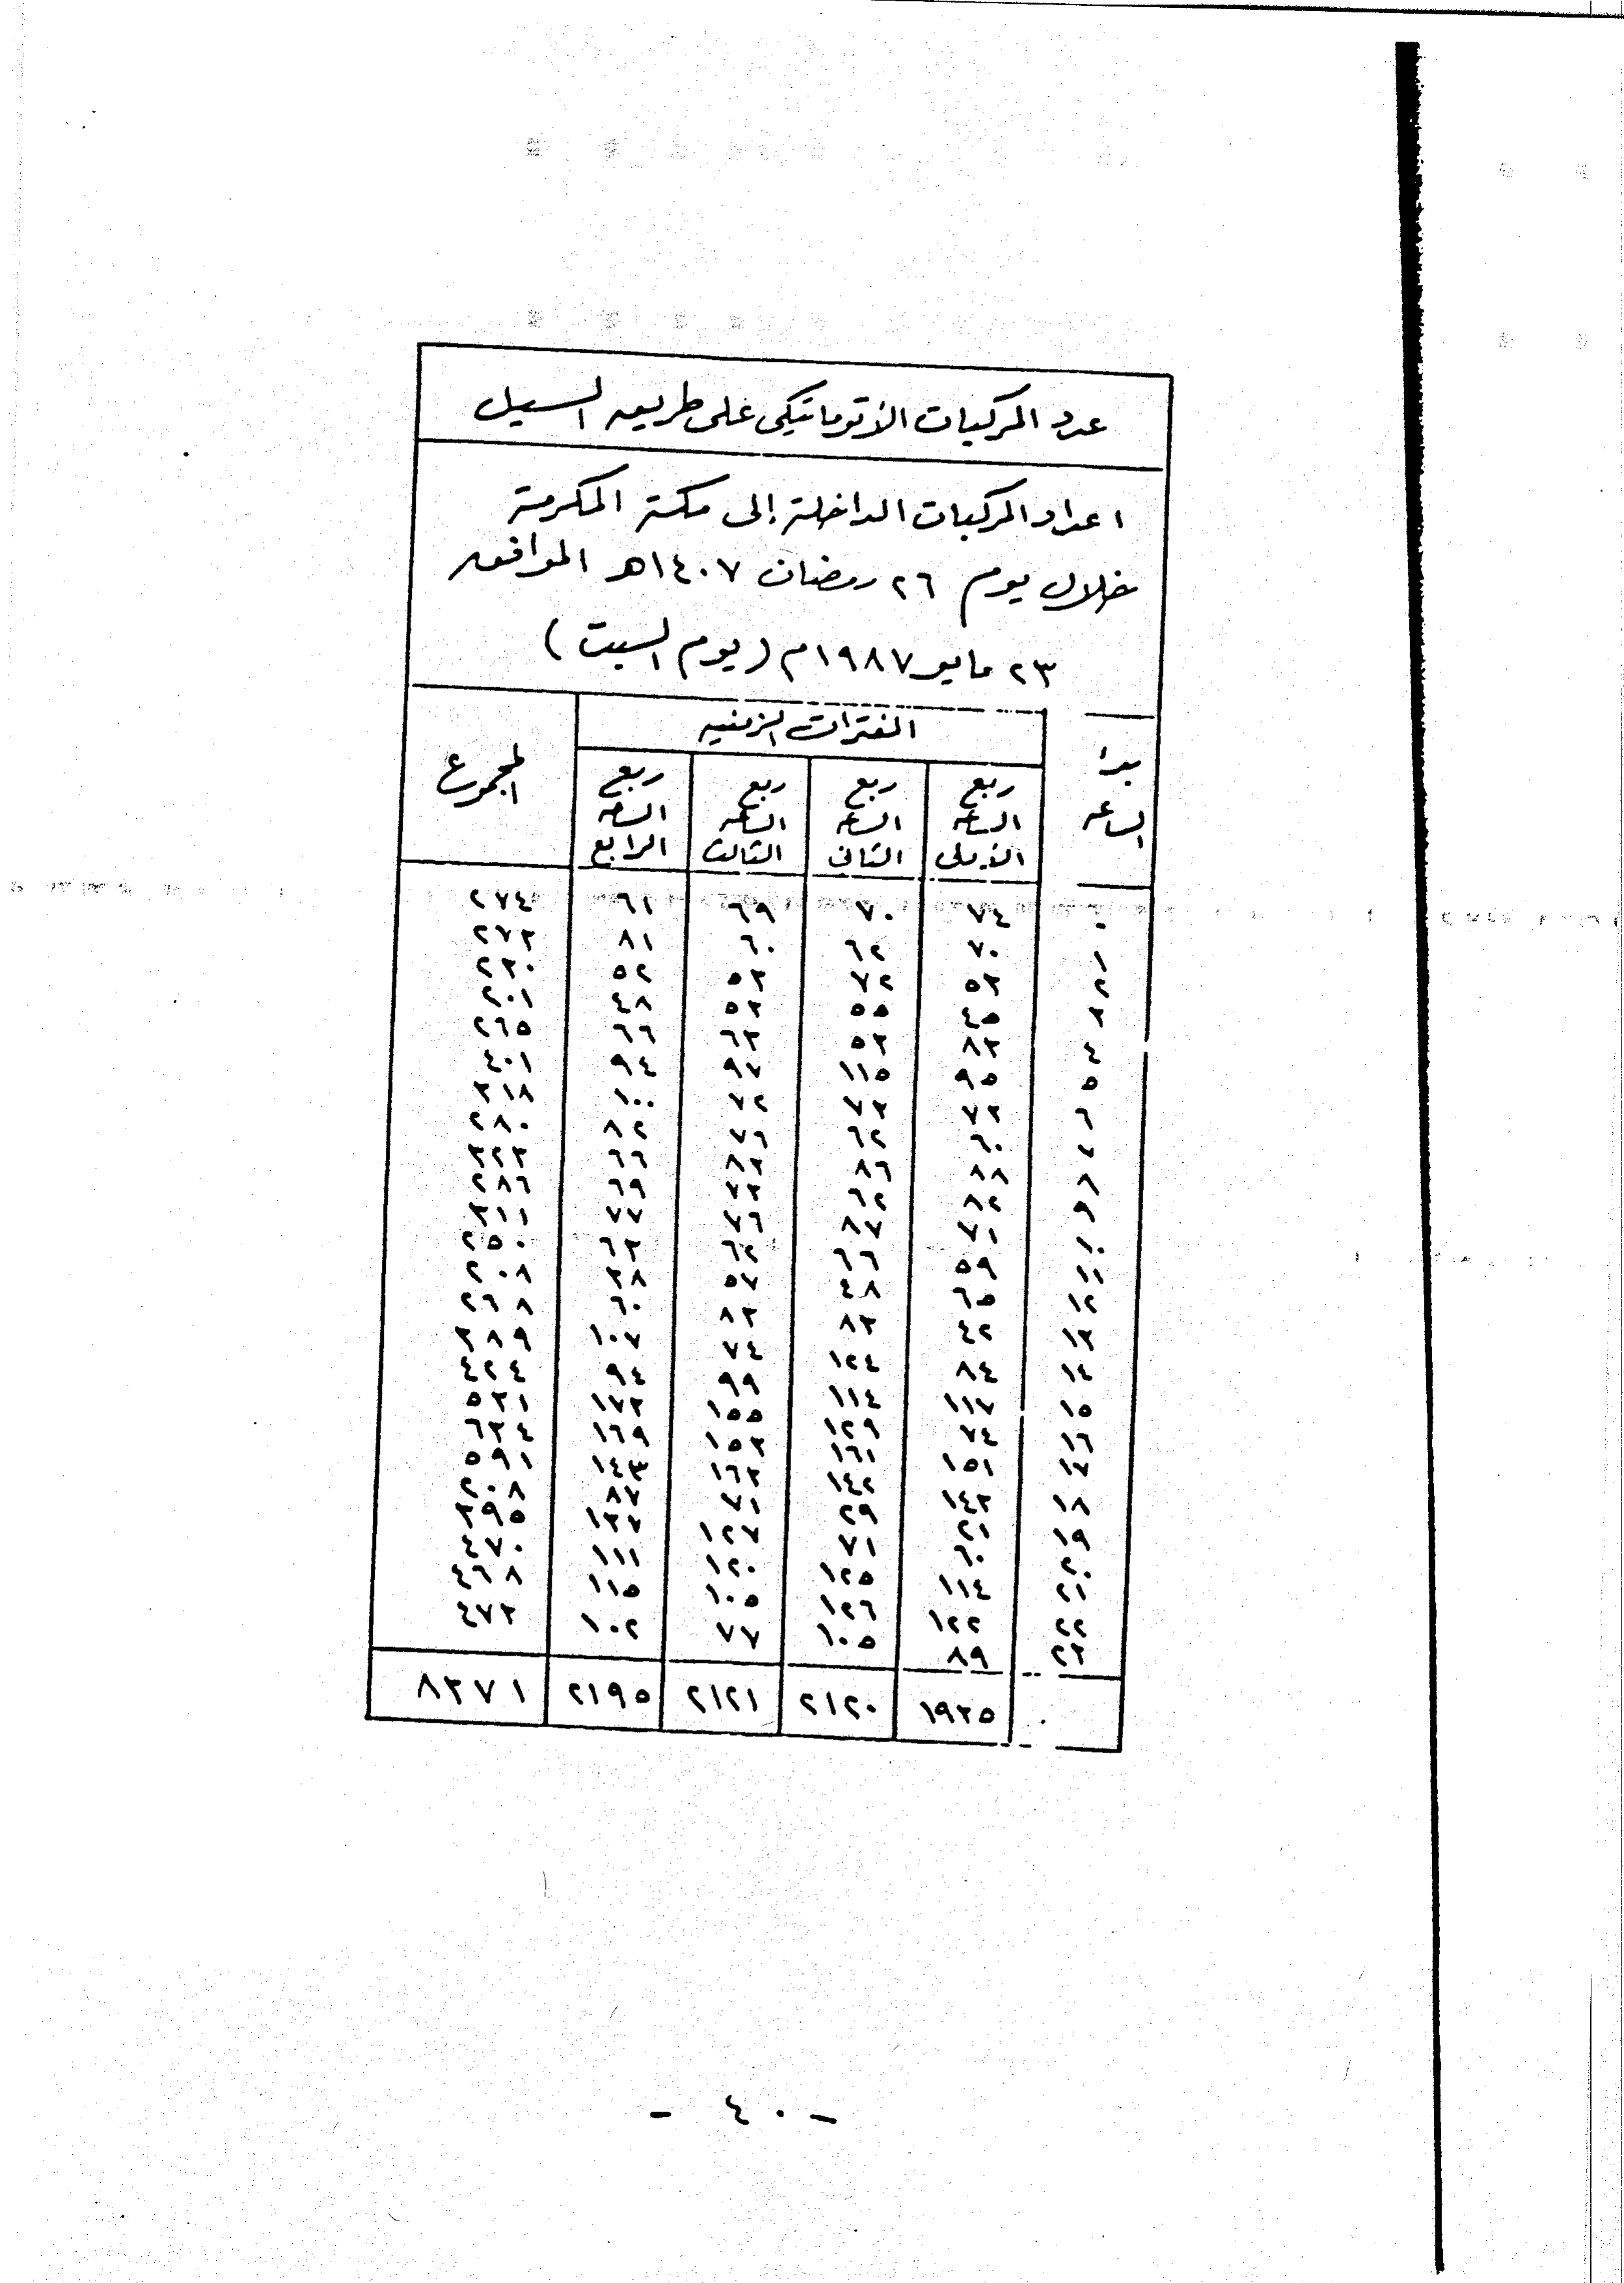 عدد المركبات الأتوماتيكى على طريق السيل
اعداد المركبات الداخلة إلى مكة المكرمة
خلال يوم ٢٦ رمضان ١٤٠٧هـ الموافق
٢٣ مايو ١٩٨٧م (يوم السبت)
بدا الساعه | الفترات الزمنيه | المجموع
ربع الساعه الأولى | ربع الساعه الثانى | ربع الساعه الثالث | ربع الساعه الرابع
٠ ٧٤ ٧٠ ٦٩ ٦١ ٢٧٤
١ ٧٠ ٦٢ ٦٠ ٨١ ٢٧٣
٢ ٥٣ ٧٢ ٥٣ ٥٢ ٢٣٠
٣ ٤٥ ٥٥ ٥٣ ٤٨ ٢٠١
٤ ٨٣ ٥٣ ٦٣ ٦٦ ٢٦٥
٥ ٩٥ ١١٥ ٩٧ ٩٤ ٤٠١
٦ ٧٣ ٧٣ ٧٢ ١٠٠ ٣١٨
٧ ٦٠ ٦٢ ٧٦ ٨٢ ٢٨٠
٨ ٨٨ ٨٦ ٨٣ ٦٦ ٣٢٣
٩ ٨٢ ٦٢ ٧٣ ٦٩ ٢٨٦
١٠ ٧١ ٨٧ ٧٦ ٧٧ ٣١١
١١ ٥٩ ٦٦ ٦٢ ٦٣ ٢٥٠
١٢ ٦٥ ٤٨ ٥٧ ٣٨ ٢٠٨
١٣ ٤٢ ٨٣ ٨٣ ٦٠ ٢٦٨
١٤ ٨٤ ١٢٤ ٧٤ ١٠٧ ٣٨٩
١٥ ١١٧ ١١٤ ٩٩ ٩٤ ٤٢٤
١٦ ٧٤ ١٢٩ ١٥٥ ١٧٣ ٥٣١
١٧ ١٥١ ١٦١ ١٥٣ ١٦٩ ٦٣٤
١٨ ١٤٣ ١٤٢ ١٦٣ ١٤٣ ٥٩١
١٩ ٢١ ٢٩ ٧١ ٨٧ ٢٠٨
٢٠ ٦٠ ٧١ ١٢٧ ١٣٧ ٣٩٥
٢١ ١١٤ ١٢٥ ١٢٠ ١١١ ٤٧٠
٢٢ ١٢٢ ١٢٦ ١٠٥ ١١٥ ٤٦٨
٢٣ ٨٩ ١٠٥ ٧٧ ١٠٢ ٤٧٣
١٩٣٥ ٢١٢٠ ٢١٢١ ٢١٩٥ ٨٣٧١
- ٤٠ -